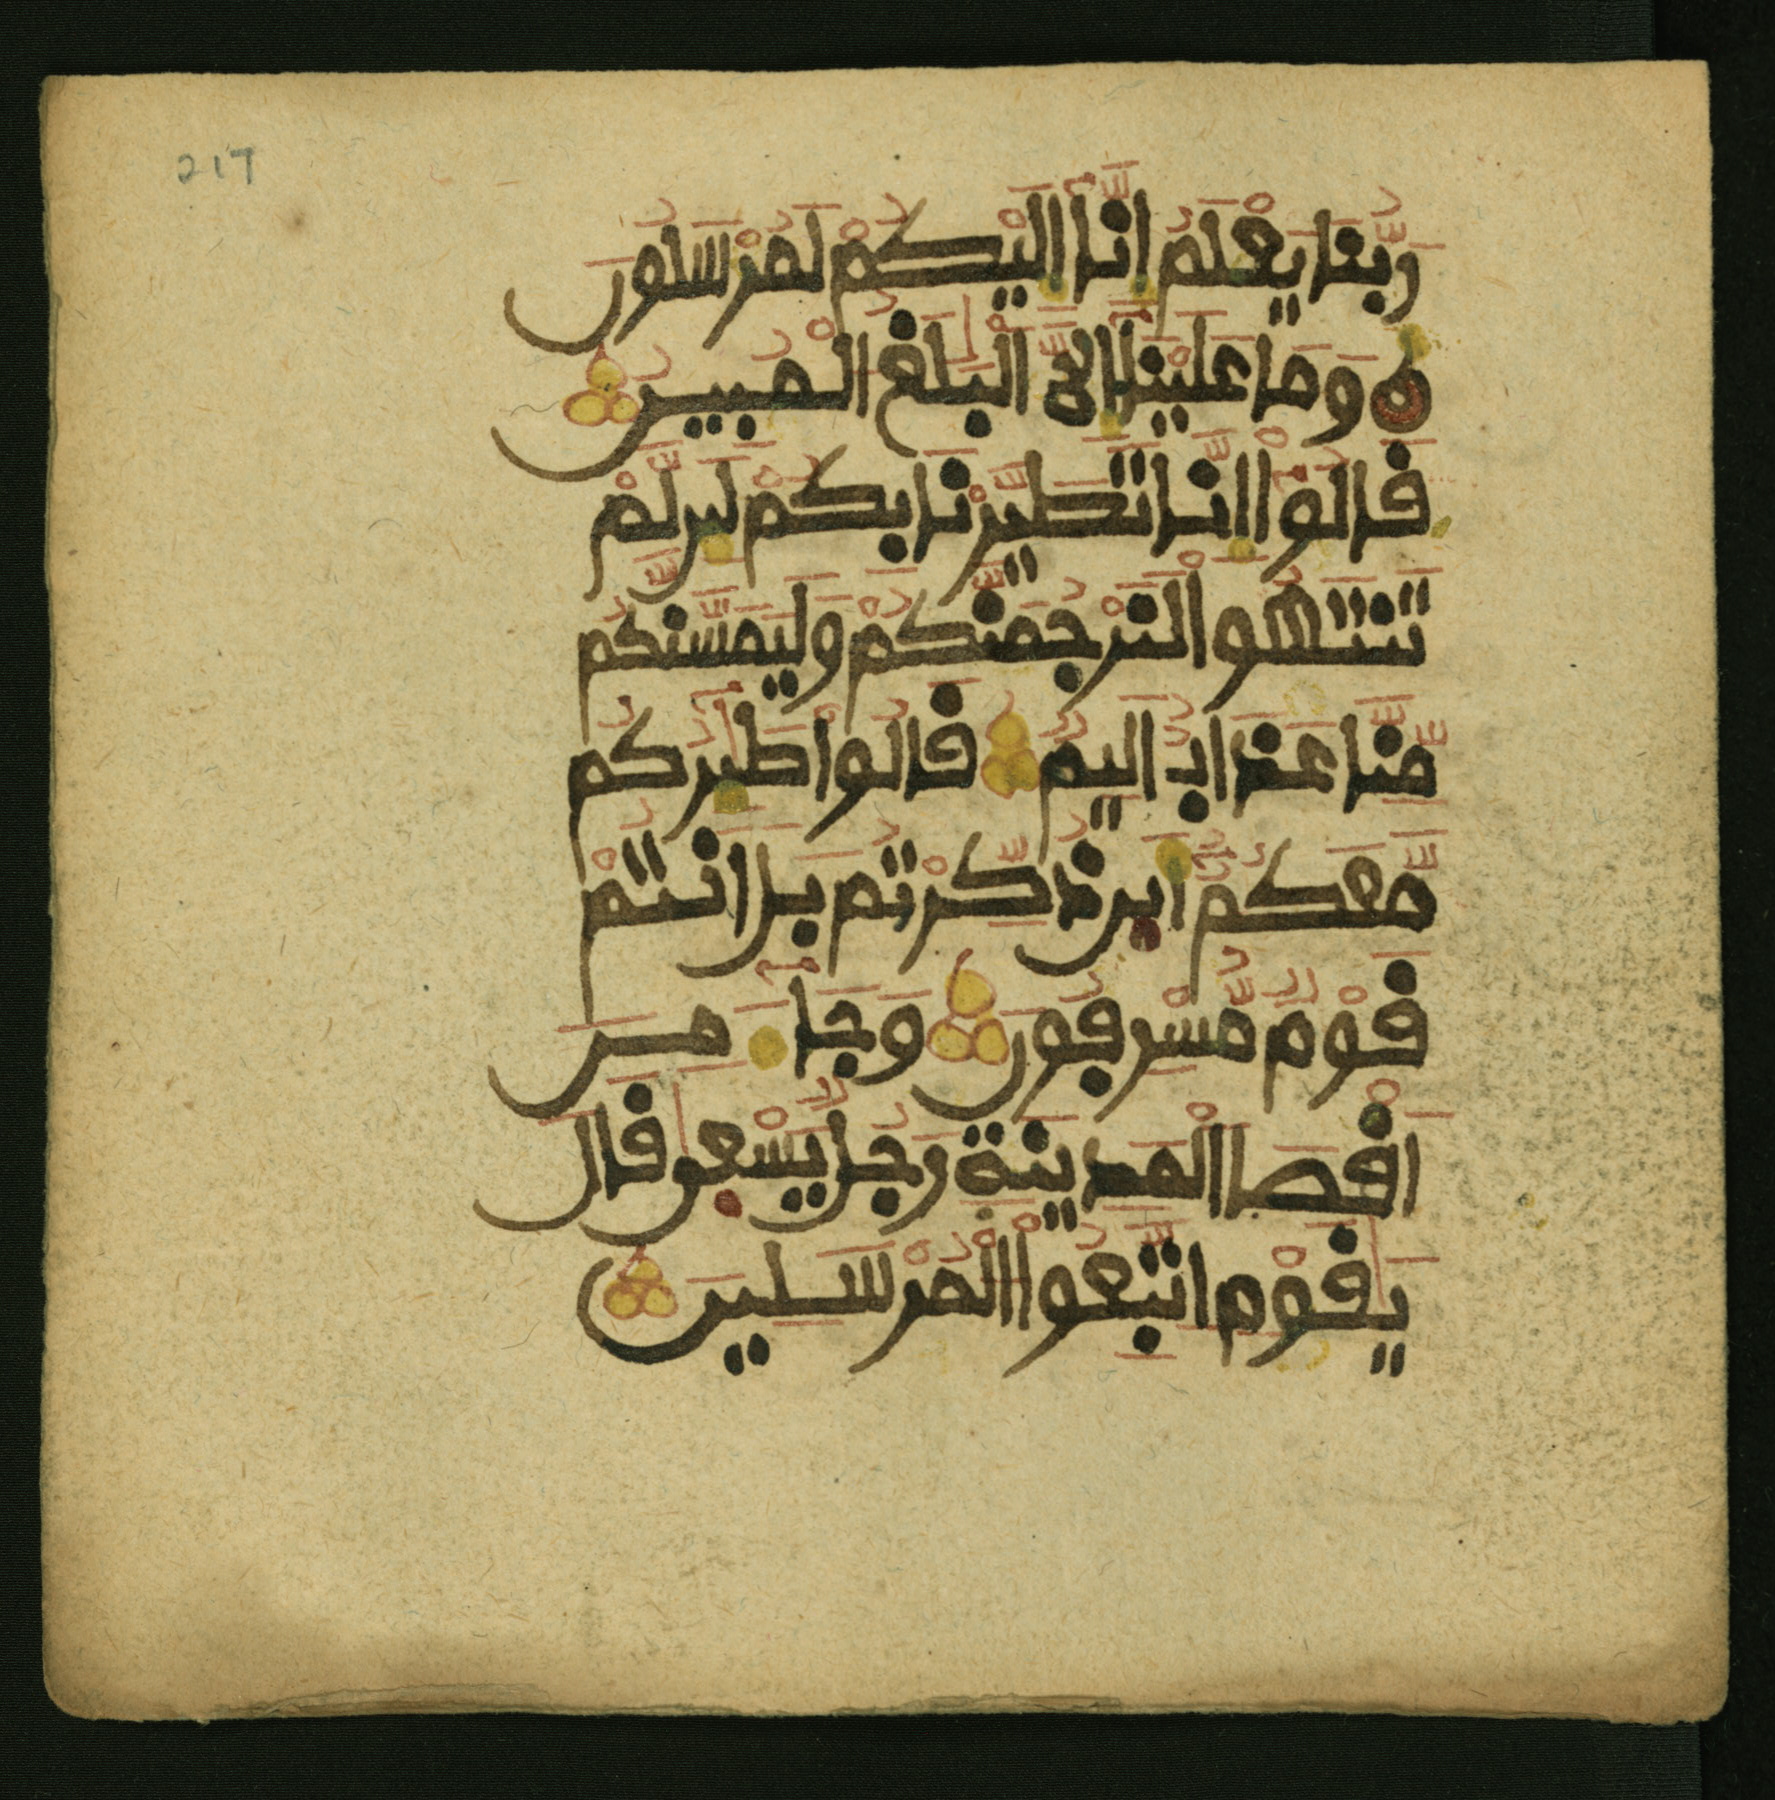 217
رَبُّنَا يَعْلَمُ إِنَّآ إِلَيْكُمْ لَمُرْسَلُونَ
وَمَا عَلَيْنَآ إِلَّا ٱلْبَلَٰغُ ٱلْمُبِينُ
قَالُوٓاْ إِنَّا تَطَيَّرْنَا بِكُمْ لَئِن لَّمْ
تَنتَهُواْ لَنَرْجُمَنَّكُمْ وَلَيَمَسَّنَّكُم
مِّنَّا عَذَابٌ أَلِيمٌ قَالُواْ طَٰٓئِرُكُم
مَّعَكُمُۥٓ أَئِن ذُكِّرْتُم بَلْ أَنتُمْ
قَوْمٌ مُّسْرِفُونَ وَجَآءَ مِنْ
أَقْصَا ٱلْمَدِينَةِ رَجُلٌ يَسْعَىٰ قَالَ
يَٰقَوْمِ ٱتَّبِعُواْ ٱلْمُرْسَلِينَ